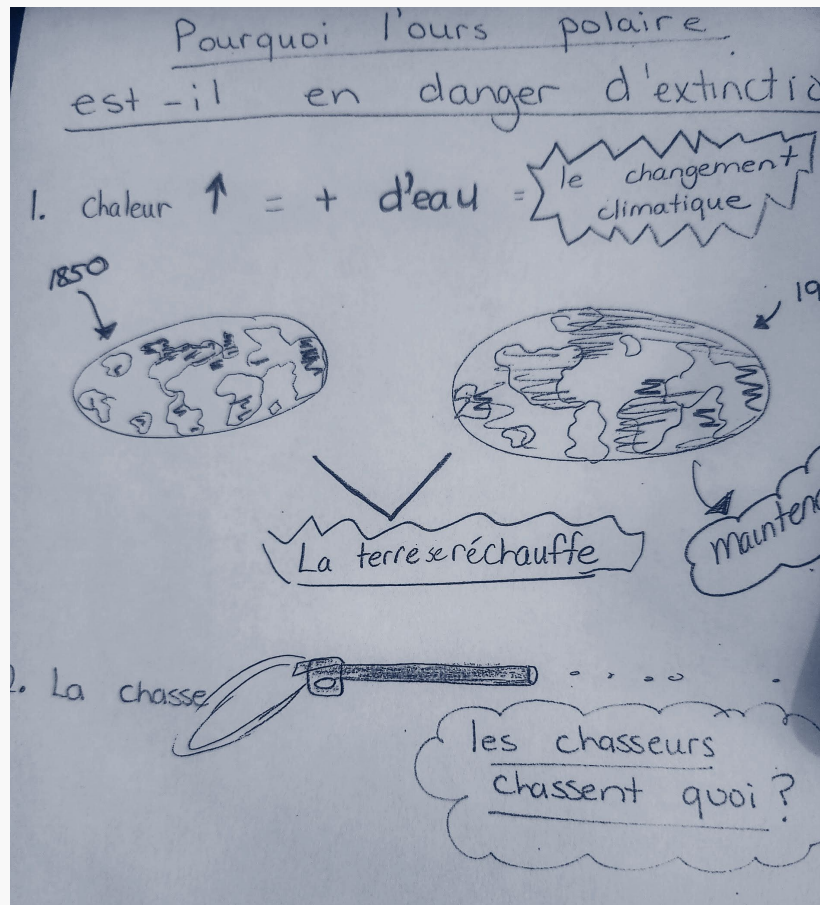 Pourquoi l'ours polaire
est-il en danger d'extinctio
1. Chaleur ↑ = + d'eau = le changement
climatique
1850
19
La terre se réchauffe
mainten
2. La chasse
les chasseurs
chassent quoi ?